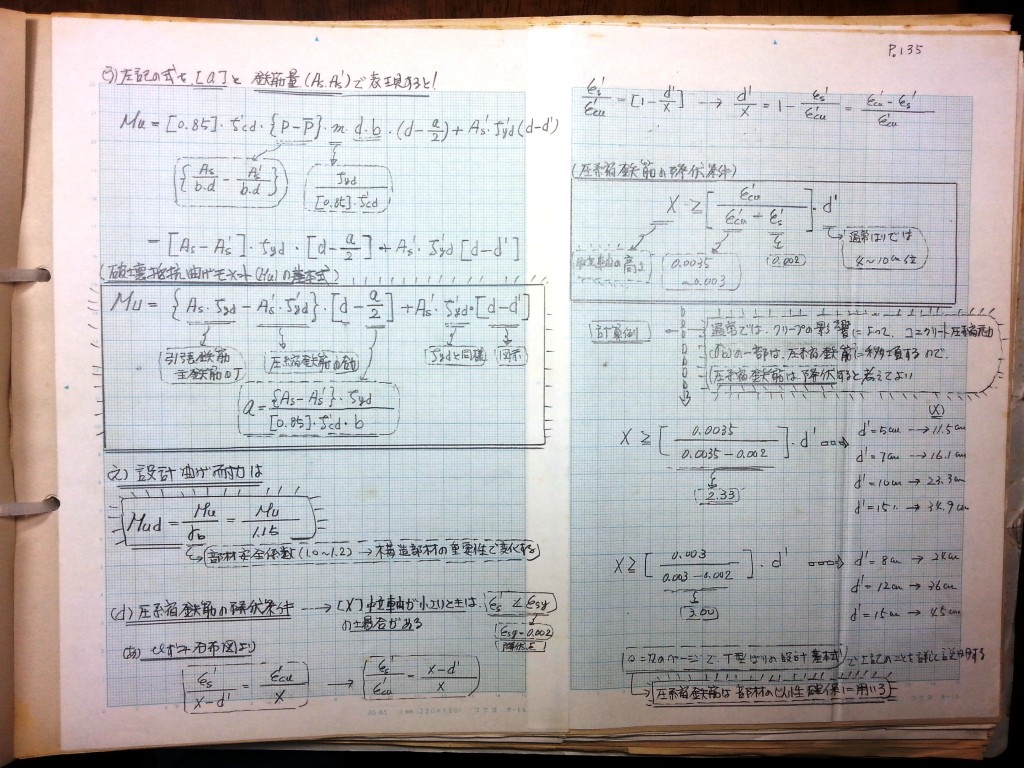 P.135
う) 左記の式を [a] と 鉄筋量 (As.As') で表現すると!
Mu = [0.85]・f'cd・{P-P̄}・m d・b・(d-a/2) + As'・f'yd (d-d')
{As/b.d - As'/b.d}
fyd/[0.85]・f'cd
= [As-As']・fyd・[d-a/2] + As'・f'yd [d-d']
(破壊抵抗曲げモーメント(Mu)の基本式)
Mu = {As・fyd - As'・f'yd}・[d-a/2] + As'・f'yd・[d-d']
引張鉄筋
主鉄筋の
圧縮鉄筋
fydと同様
図示
a = {As-As'}・fyd/[0.85]・f'cd・b
え) 設計曲げ耐力は
Mud = Mu/γb = Mu/1.15
部材安全係数 (1.0~1.2) → 構造部材の重要性で変化する
(d) 圧縮鉄筋の降伏条件 → [X] 中立軸が小さいときは εs' < εsy
の場合がある
εsy=0.002
降伏点
(あ) ひずみ分布図より
εs'/x-d' = ε'cu/x → εs'/ε'cu = x-d'/x
εs'/ε'cu = [1-d'/x] → d'/x = 1-εs'/ε'cu = ε'cu-εs'/ε'cu
(圧縮鉄筋の降伏条件)
X ≥ [ε'cu/ε'cu-εs']・d'
中立軸の高さ
0.0035
~0.003
0.002
通常はりでは
4~10cm位
計算例
通常では、クリープの影響によって、コンクリート圧縮応力
の一部は、圧縮鉄筋に移項するので、
圧縮鉄筋は降伏すると考えてよい
(X)
X ≥ [0.0035/0.0035-0.002]・d'
2.33
d'=5cm → 11.5cm
d'=7cm → 16.1cm
d'=10cm → 23.3cm
d'=15cm → 34.9cm
X ≥ [0.003/0.003-0.002]・d'
3.00
d'=8cm → 24cm
d'=12cm → 36cm
d'=15cm → 45cm
のページで T型はりの設計基本式 で上記のことも詳しく説明する
圧縮鉄筋は部材のじん性確保に用いる